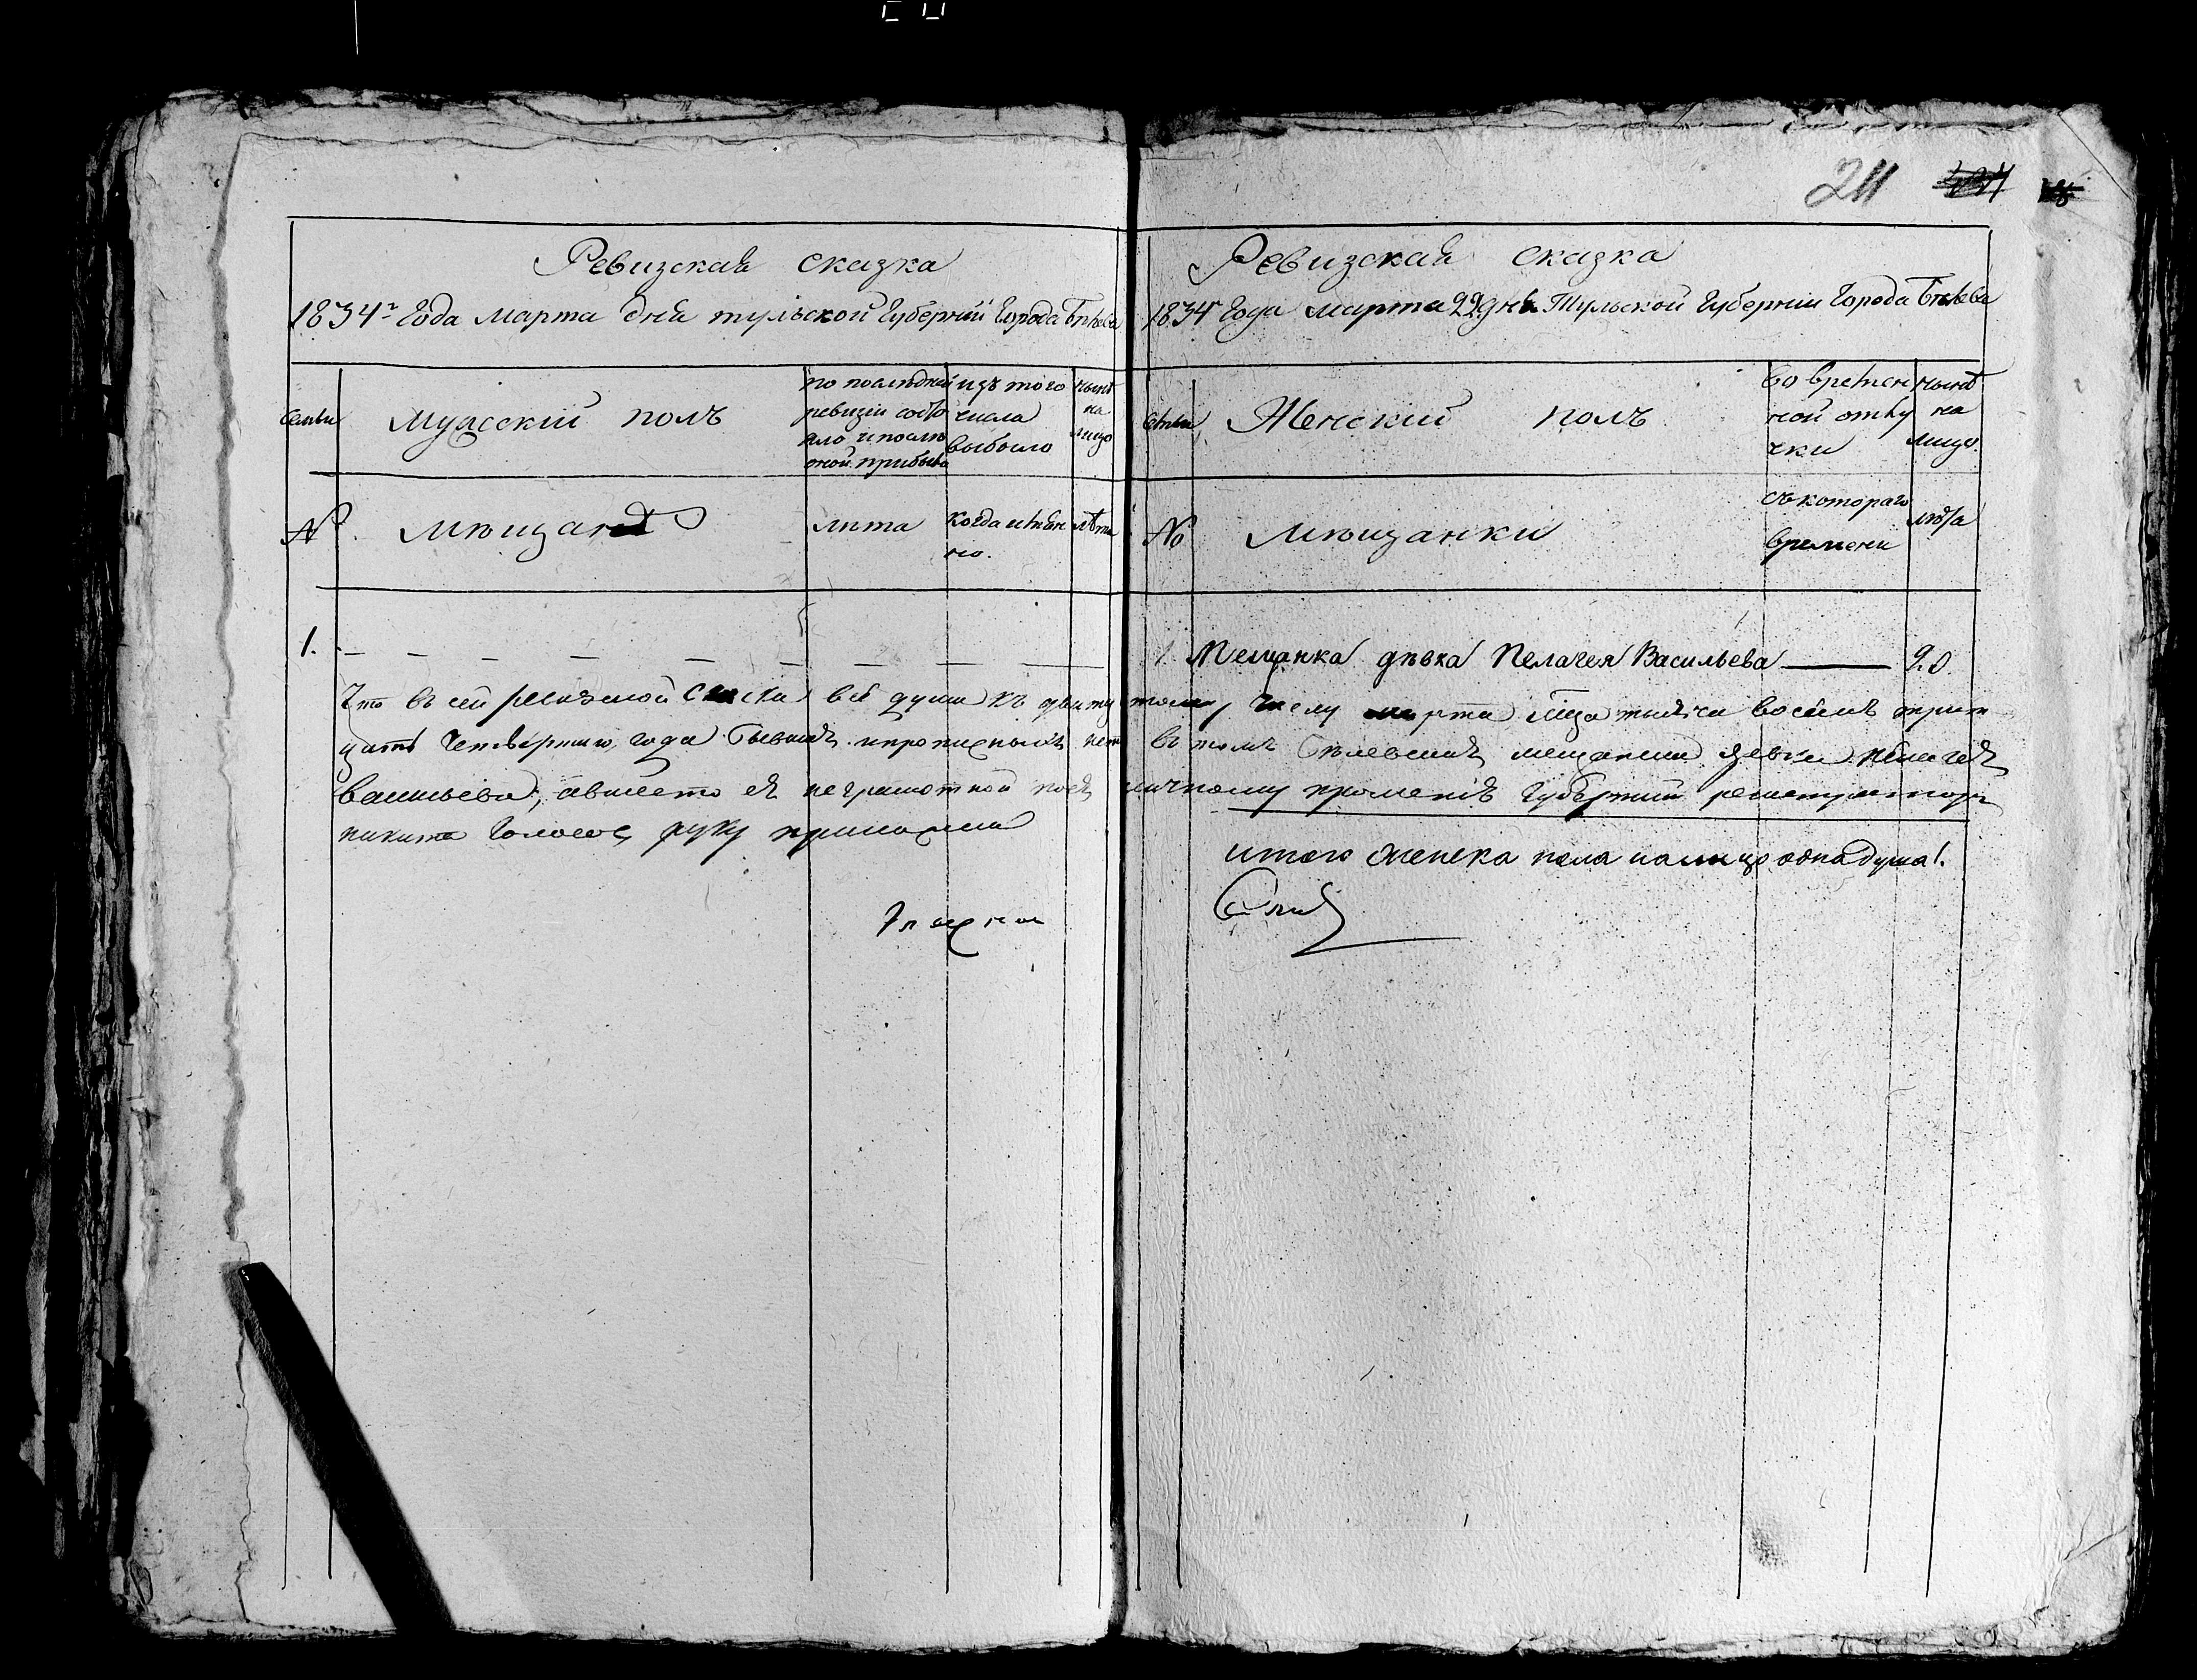 211
Ревизская сказка
1834г Года марта дня тульской Губернии Города Бѣлева
Семьи
мужескій полъ
по послѣдней
ревизіи состо
яло и посль
оной прибыло
изъ того
числа
выбыло
нынѣ
на
лицо
№
мѣщанѣ
лѣта
когда имянно.
лѣта
1.
Ревизская сказка
1834г Года марта 22 днь Тульской Губерніи Города Бѣлева
Семьи
Женский полъ
Во времен
ной отлу
чки
нынѣ
на
лицо.
№
мѣщанки
съ котораго
времени
лѣта
1 Мещанка дѣвка Пелагея Васильева 20
Что въ сей ревизкой скаски всѣ души къ двату тому числу марта тысеча восемъ трит
цать четвертого года и прописныхъ нет в томъ мещанки девки пелагея
васильева, авместо ея неграмотной поея личному прошенію Губернии регистраторъ
никита руку приложилъ
итого женска пола налицо одна душа 1.